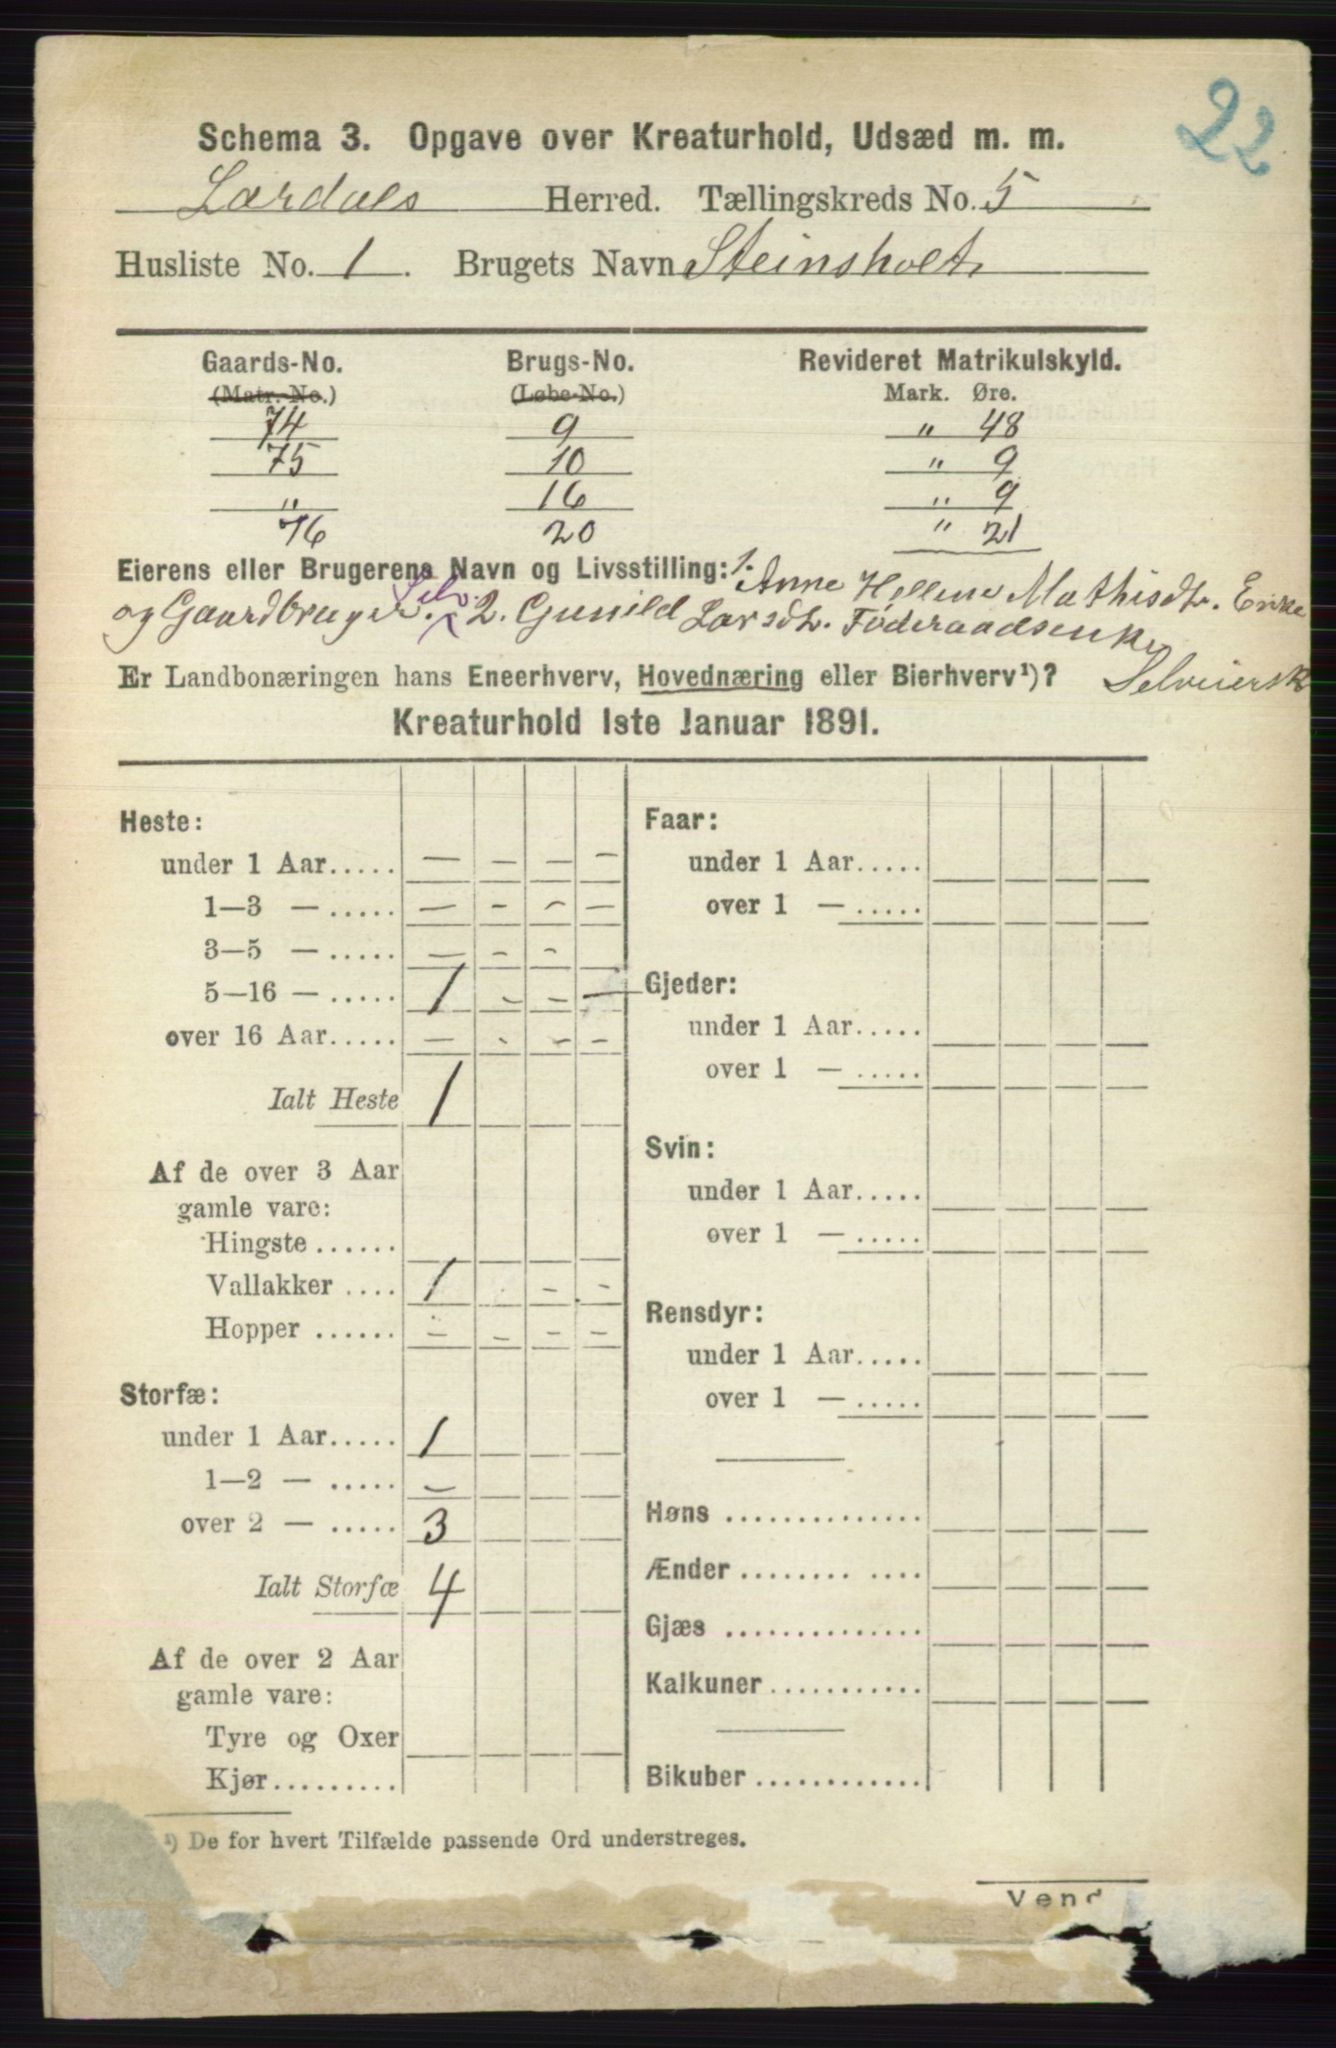 22
Schema 3. Opgave over Kreaturhold, Udsæd m. m.
Lardals Herred. Tællingskreds No. 5
Husliste No. 1. Brugets Navn Steinsholt
Gaards-No. Brugs-No. Revideret Matrikulskyld.
(Matr.-No.) (Løbe-No.) Mark. Øre.
74 9 " 48
75 10 " 9
" 16 " 9
76 20 " 21
Eierens eller Brugerens Navn og Livsstilling: 1. Anne Hellene Mathisdtr. Enke
og Gaardbruger. Selv. 2. Gunild Larsdtr. Føderaadsenke
Selveiersk
Er Landbonæringen hans Eneerhverv, Hovednæring eller Bierhverv¹)?
Kreaturhold 1ste Januar 1891.
Heste:
under 1 Aar..... — — — —
1—3 — ..... — — — —
3—5 — ..... — — —
5—16 — ..... 1 — — —
over 16 Aar..... — - — —
Ialt Heste 1
Af de over 3 Aar
gamle vare:
Hingste ......
Vallakker .... 1 . — —
Hopper ...... — — — —
Storfæ:
under 1 Aar..... 1
1—2 — ..... —
over 2 — ..... 3
Ialt Storfæ 4
Af de over 2 Aar
gamle vare:
Tyre og Oxer
Kjør..........
Faar:
under 1 Aar.....
over 1 — .....
Gjeder:
under 1 Aar.....
over 1 — .....
Svin:
under 1 Aar.....
over 1 — .....
Rensdyr:
under 1 Aar.....
over 1 — .....
Høns ...............
Ænder ........ ....
Gjæs ...............
Kalkuner...........
Bikuber.............
¹) De for hvert Tilfælde passende Ord understreges.
Vend